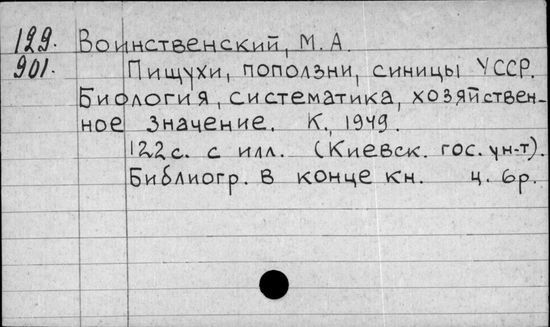 129. Воинственский, М. А.
901. Пищухи, поползни, синицы УССР.
Биология, систематика, хозяйствен-
ное значение. К., 1949.
122 с. с илл. (Киевск. гос. ун-т).
Библиогр. в конце кн. ц. 6р.